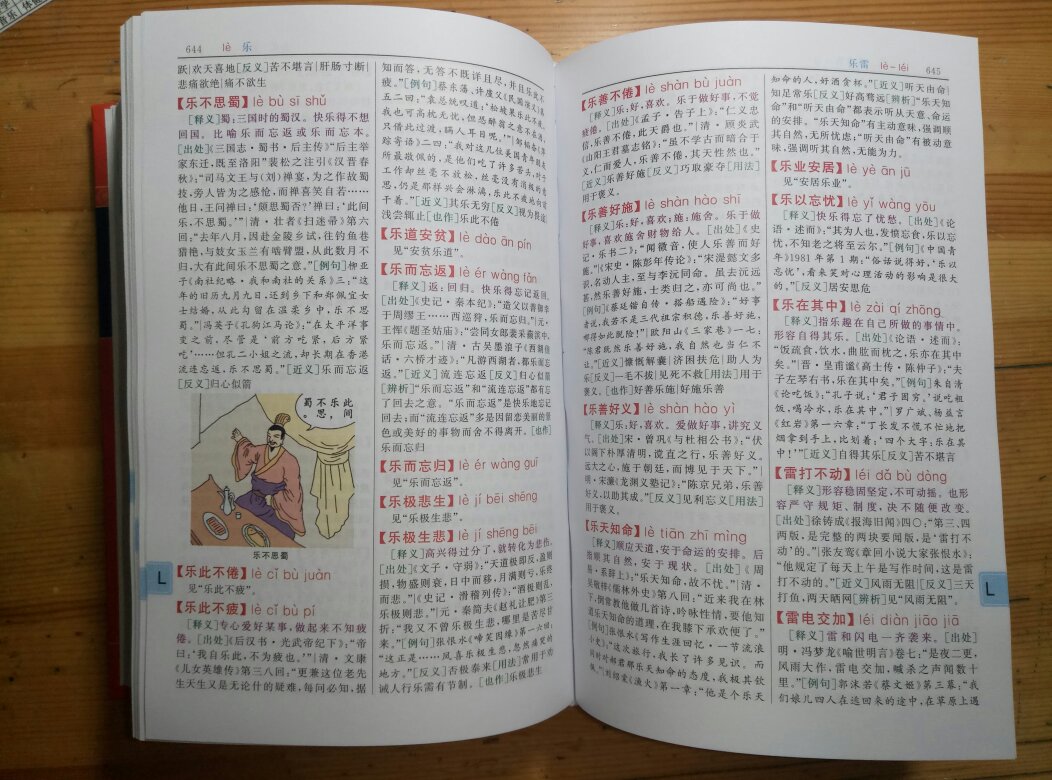 644 lè 乐
跃│欢天喜地[反义]苦不堪言│肝肠寸断│
悲痛欲绝│痛不欲生
【乐不思蜀】lè bù sī shǔ
[释义]蜀:三国时的蜀汉。快乐得不想
回国。比喻乐而忘返或乐而忘本。
[出处]《三国志·蜀书·后主传》“后主举
家东迁,既至洛阳”裴松之注引《汉晋春
秋》:“司马文王与(刘)禅宴,为之作故蜀
技,旁人皆为之感怆,而禅喜笑自若……
他日,王问禅曰:‘颇思蜀否?’禅曰:‘此间
乐,不思蜀。’”│清·壮者《扫迷帚》第六
回:“去年八月,因赴金陵乡试,往钓鱼巷
猎艳,与妓女玉兰有啮臂盟,从此数月不
归,大有此间乐不思蜀之意。”[例句]柳亚
子《南社纪略·我和南社的关系》三:“这
一年的旧历九月九日,还到乡下和郑佩宜女
士结婚,从此勾留在温柔乡中,乐不思
蜀。”│冯英子《孔狗江马论》:“在太平洋事
变之前,尽管是‘前方吃紧,后方紧
吃’……但孔二小姐之流,却长期在香港
流连忘返,乐不思蜀。”[近义]乐而忘返
[反义]归心似箭
蜀不乐此
。思,间
乐不思蜀
【乐此不倦】lè cǐ bù juàn
见“乐此不疲”。
【乐此不疲】lè cǐ bù pí
[释义]专心爱好某事,做起来不知疲
倦。[出处]《后汉书·光武帝纪下》:“帝
曰:‘我自乐此,不为疲也。’”│清·文康
《儿女英雄传》第三八回:“更兼这位老先
生天生又是无论什的疑难,每问必知,据
知而答,无答不既详且尽,并且乐此不
疲。”[例句]蔡东藩、许廑父《民国演义》第
五二回:“袁总统叹道:‘
我也可高枕无忧,但恐醉翁之意不在酒,
只借此过渡,瞒人耳目呢。’”│邹韬奋《萍
踪寄语》二四:“我对这几位美国青年朋友
所最敬佩的,是他们吃了许多苦头,对于
工作却丝毫不放松,丝毫没有消极的意
思,仍是那样兴会淋漓,乐此不疲地向前
干着。”[近义]其乐无穷[反义]视为畏途│
浅尝辄止[也作]乐此不倦
【乐道安贫】lè dào ān pín
见“安贫乐道”。
【乐而忘返】lè ér wàng fǎn
[释义]返:回归。快乐得忘记返回。
[出处]《史记·秦本纪》:“造父以善御幸
于周缪王……西巡狩,乐而忘归。”│元·
王恽《题圣姑庙》:“尝同女郎萎菜蘋滨中,
乐而忘返。”│清·古吴墨浪子《西湖佳
话·六桥才迹》:“凡游西湖者,都乐而忘
返。”[近义]流连忘返[反义]归心似箭
[辨析]“乐而忘返”和“流连忘返”都有忘
了回去之意。“乐而忘返”是快乐地忘记
回去;而“流连忘返”多是因留恋美丽的景
色或美好的事物而舍不得离开。[也作]
乐而忘归
【乐而忘归】lè ér wàng guī
见“乐而忘返”。
【乐极悲生】lè jí bēi shēng
见“乐极生悲”。
【乐极生悲】lè jí shēng bēi
[释义]高兴得过分了,就转化为悲伤。
[出处]《文子·守弱》:“天道极即反,盈则
损,物盛则衰,日中而移,月满则亏,乐终
而悲。”│《史记·滑稽列传》:“酒极则乱,
乐极则悲。”│元·秦简夫《赵礼让肥》第三
折:“我又不曾乐极悲生,哪里是苦尽甘
来。”[例句]张恨水《啼笑因缘》第一六回:
“这正是……凤喜乐极生悲,忽然痛哭的
地方。”[反义]否极泰来[用法]常用于劝
诫人行乐需有节制。[也作]乐极悲生
L
乐雷 lè-léi 645
【乐善不倦】lè shàn bù juàn
[释义]乐:好,喜欢。乐于做好事,不觉
疲倦。[出处]《孟子·告子上》:“仁义忠
信,乐善不倦,此天爵也。”│清·顾炎武
《山阳王君墓志铭》:“虽不学古而暗合于
义,仁而爱人,乐善不倦,其天性然也。”
[近义]乐善好施[反义]巧取豪夺[用法]
用于褒义。
【乐善好施】lè shàn hào shī
[释义]乐:好;好,喜;施:施舍。乐于做
好事,喜欢施舍财物给人。[出处]《史
记·乐书二》:“闻徵音,使人乐善而好
施。”│《宋史·陈彭年传论》:“宋湜懿文多
识,名动人主,至与李沆同命。虽去沆远
甚,然乐善好施,士类归之,亦可尚也。”
[例句]《蔡廷锴自传·搭船遇险》:“好事
者说,我若不是三代祖宗积德,乐善好施,
哪得如此脱险!”│欧阳山《三家巷》一七:
“陈君既然乐善好施,我自然也当仁不
让。”[近义]慷慨解囊│济困扶危│助人为
乐[反义]一毛不拔│见死不救[用法]用于
褒义。[也作]好善乐施│好施乐善
【乐善好义】lè shàn hào yì
[释义]乐:好,喜欢。爱做好事,讲究义
气。[出处]宋·曾巩《与杜相公书》:“伏
以阁下朴厚清明,谠直之行,乐善好义。
远大之心,施于朝廷,而博见于天下。”│
明·宋濂《龙渊义塾记》:“陈京兄弟,乐善
好义,以助其成。”[反义]见利忘义[用法]
用于褒义。
【乐天知命】lè tiān zhī mìng
[释义]顺应天道,安于命运的安排。后
指顺其自然,安于现状。[出处]《周
易·系辞上》:“乐天知命,故不忧。”│清·
吴敬梓《儒林外史》第八回:“近来我在林
下,倒常教他做几首诗,吟咏性情,要他知
道乐天知命的道理,在我膝下承欢便了。”
[例句]张恨水《写作生涯回忆·一节流浪
小史》:“这次旅行,我长了许多见识。而
同时对郝君那乐天知命的态度,我极其钦
佩。”│刘绍棠《渔火》第一章:“他是个乐天
知命的人,好酒贪杯。”[近义]听天由命│
知足常乐[反义]好高骛远[辨析]“乐天知
命”和“听天由命”都表示听从天意、命运
的安排。“乐天知命”有主动意味,强调顺
其自然,无所忧虑;“听天由命”有被动意
味,强调听其自然,无能为力。
【乐业安居】lè yè ān jū
见“安居乐业”。
【乐以忘忧】lè yǐ wàng yōu
[释义]快乐得忘了忧愁。[出处]《论
语·述而》:“其为人也,发愤忘食,乐以忘
忧,不知老之将至云尔。”[例句]《中国青
年》1981年第1期:“俗话说得好,‘乐以
忘忧’,看来笑对心理活动的影响是很大
的。”[反义]居安思危
【乐在其中】lè zài qí zhōng
[释义]指乐趣在自己所做的事情中。
形容自得其乐。[出处]《论语·述而》:
“饭疏食,饮水,曲肱而枕之,乐亦在其中
矣。”│晋·皇甫谧《高士传·陈仲子》:“夫
子左琴右书,乐在其中矣。”[例句]朱自清
《论吃饭》:“孔子说:‘君子固穷’,说吃粗
饭,喝冷水,乐在其中。”│罗广斌、杨益言
《红岩》第一六章:“丁长发不慌不忙地把
烟拿到手上,比划着:‘四个大字:乐在其
中!’”[近义]自得其乐[反义]苦不堪言
【雷打不动】léi dǎ bù dòng
[释义]形容稳固坚定,不可动摇。也形
容严守规矩、制度,决不随便改变。
[出处]徐铸成《报海旧闻》四〇:“第三、四
两版,是完整的两块要闻版,是‘雷打不
动’的。”│张友鸾《章回小说大家张恨水》:
“他规定了每天上午是写作时间,这是雷
打不动的。”[近义]风雨无阻│[反义]三天
打鱼,两天晒网[辨析]见“风雨无阻”。
【雷电交加】léi diàn jiāo jiā
[释义]雷和闪电一齐袭来。[出处]
明·冯梦龙《喻世明言》卷七:“是夜二更,
风雨大作,雷电交加,喊杀之声闻数十
里。”[例句]郭沫若《蔡文姬》第三幕:“我
们娘儿四人在逃回来的途中,在草原上遇
L